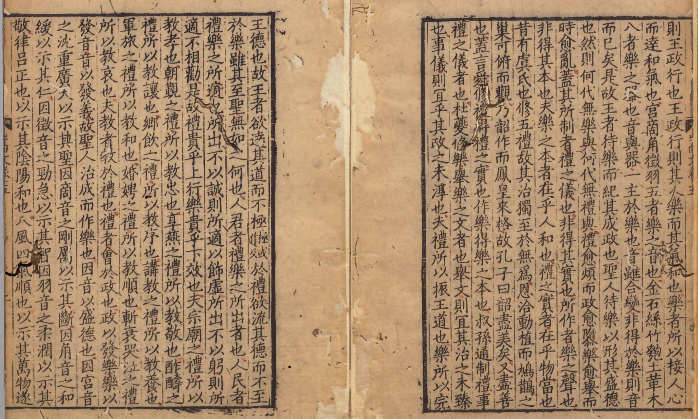 則王政行也王政行則其人樂而其氣和也樂者所以接人心
而達和氣也宮商角徵羽五者樂之音也金石絲竹匏土革木
八者樂之器也音與器一主於樂也音雖合變非得於樂則音
而已矣是故王者待樂而紀其成政也聖人待樂以形其盛德
也然則何代無樂與何代無禮與禮愈煩而政愈隳樂愈舉而
時愈亂蓋其所制者禮之儀也非得其實也所作者樂之聲也
非得其本也夫樂之本者在乎人和也禮之實者在乎物當也
昔有虞氏也修五禮故其治獨至於無為恩洽動植而鵲
巢可俯而觀乃韶作而鳳凰來格故孔子曰韶盡美矣又盡善
也蓋言舜修禮得禮之實也作樂得樂之本也叔孫通制禮事
禮之儀者也杜夔修樂舉樂之文者也舉文則宜其治之未臻
也事儀則宜乎其政之未淳也夫禮所以振王道也樂所以完
王德也故王者欲達其道而不極於禮欲流其德而不至
於樂雖其至聖無如之何也人君者禮樂之所出者也人民者
禮樂之所適也所出不以誠則所適以飾虛所出不以躬則所
適不相勸是故禮貴乎上行樂貴乎下效也夫宗廟之禮所以
教孝也朝覲之禮所以教忠也享燕之禮所以教敬也酢醻之
禮所以教讓也鄉飲之禮所以教序也講教之禮所以教養也
軍旅之禮所以教和也婚娉之禮所以教順也斬衰哭泣之禮
所以教哀也夫教者教於禮也禮者會於政也政以發樂樂以
發音音以發義故聖人治成而作樂也因音以盛德也因宮音
之沈重廣大以示其聖因商音之剛厲以示其斷因角音之和
緩以示其仁因徵音之勁急以示其智因羽音之柔潤以示其
敬律呂正也以示其陰陽和也八風四順也以示其萬物遂